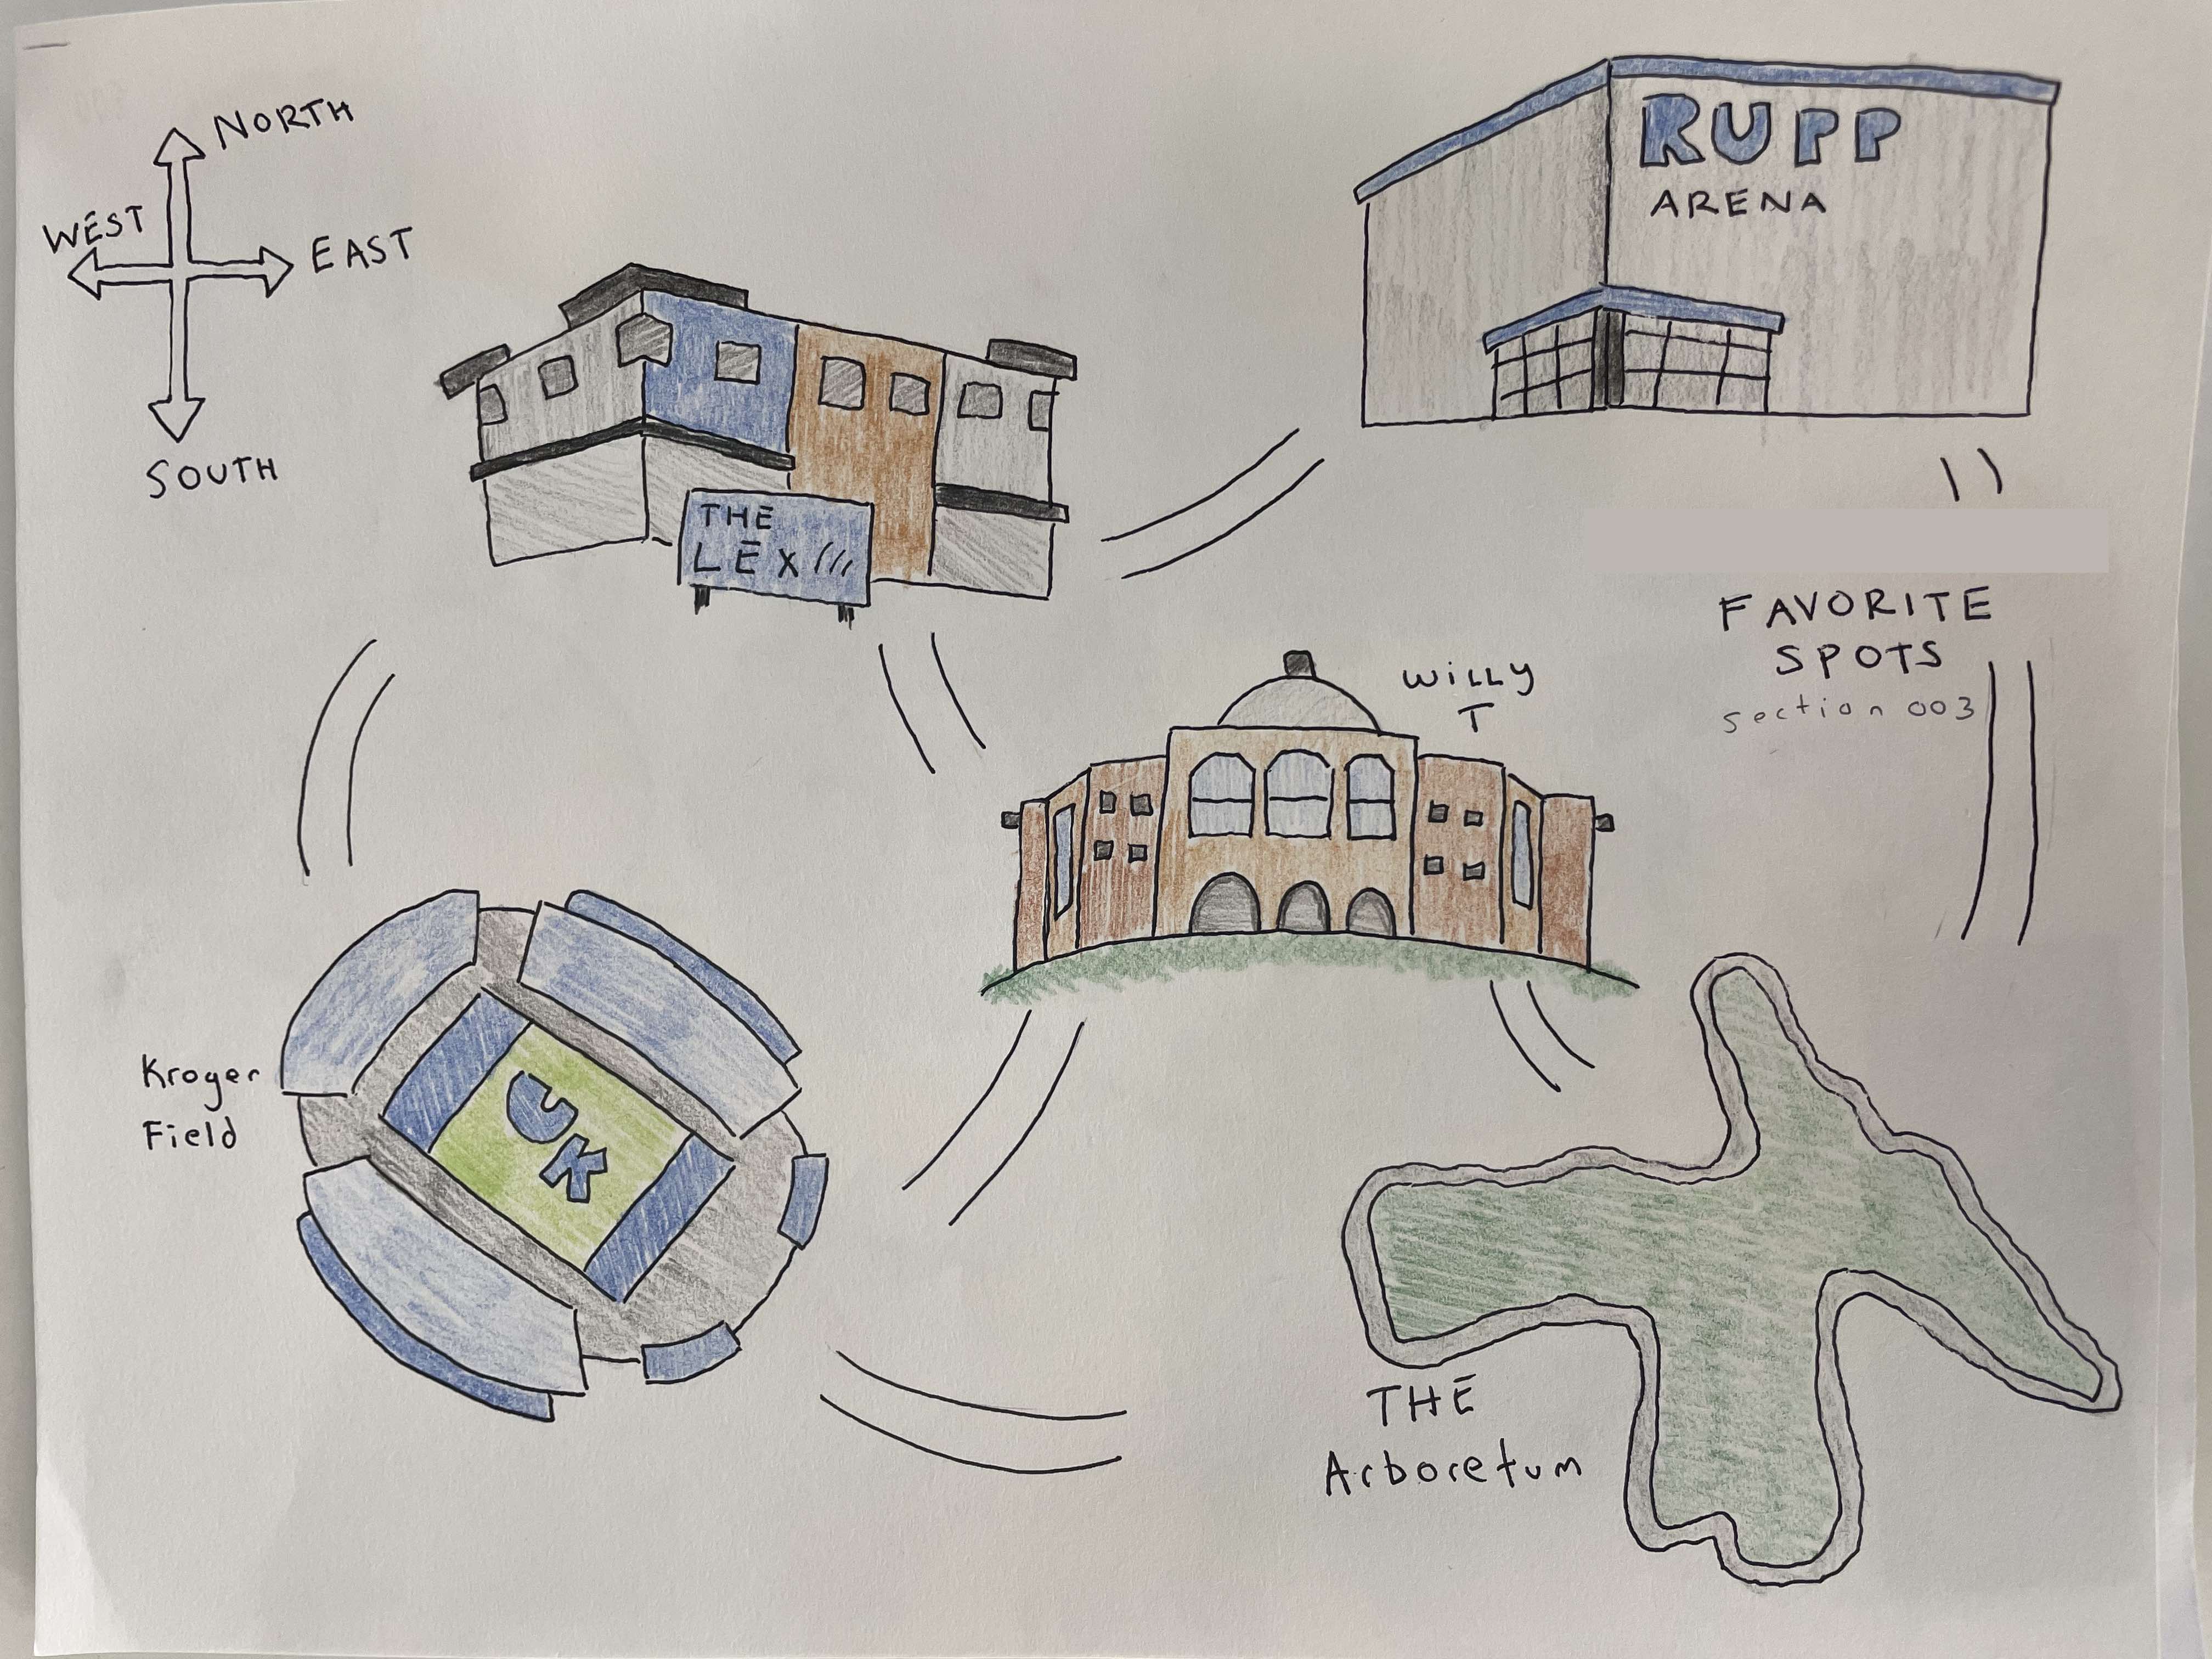 NORTH
WEST
EAST
SOUTH
RUPP
ARENA
THE
LEX
FAVORITE
SPOTS
section 003
WiLLY
T
Kroger
Field
UK
THE
Arboretum